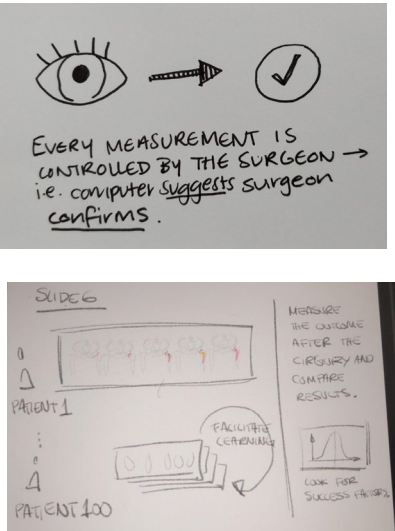 EVERY MEASUREMENT IS
CONTROLLED BY THE SURGEON →
i.e. computer suggests surgeon
confirms.
SLIDE 6
PATIENT 1
PATIENT 100
FACILITATE
LEARNING
MEASURE
THE OUTCOME
AFTER THE
CIRGURY AND
COMPARE
RESULTS.
LOOK FOR
SUCCESS